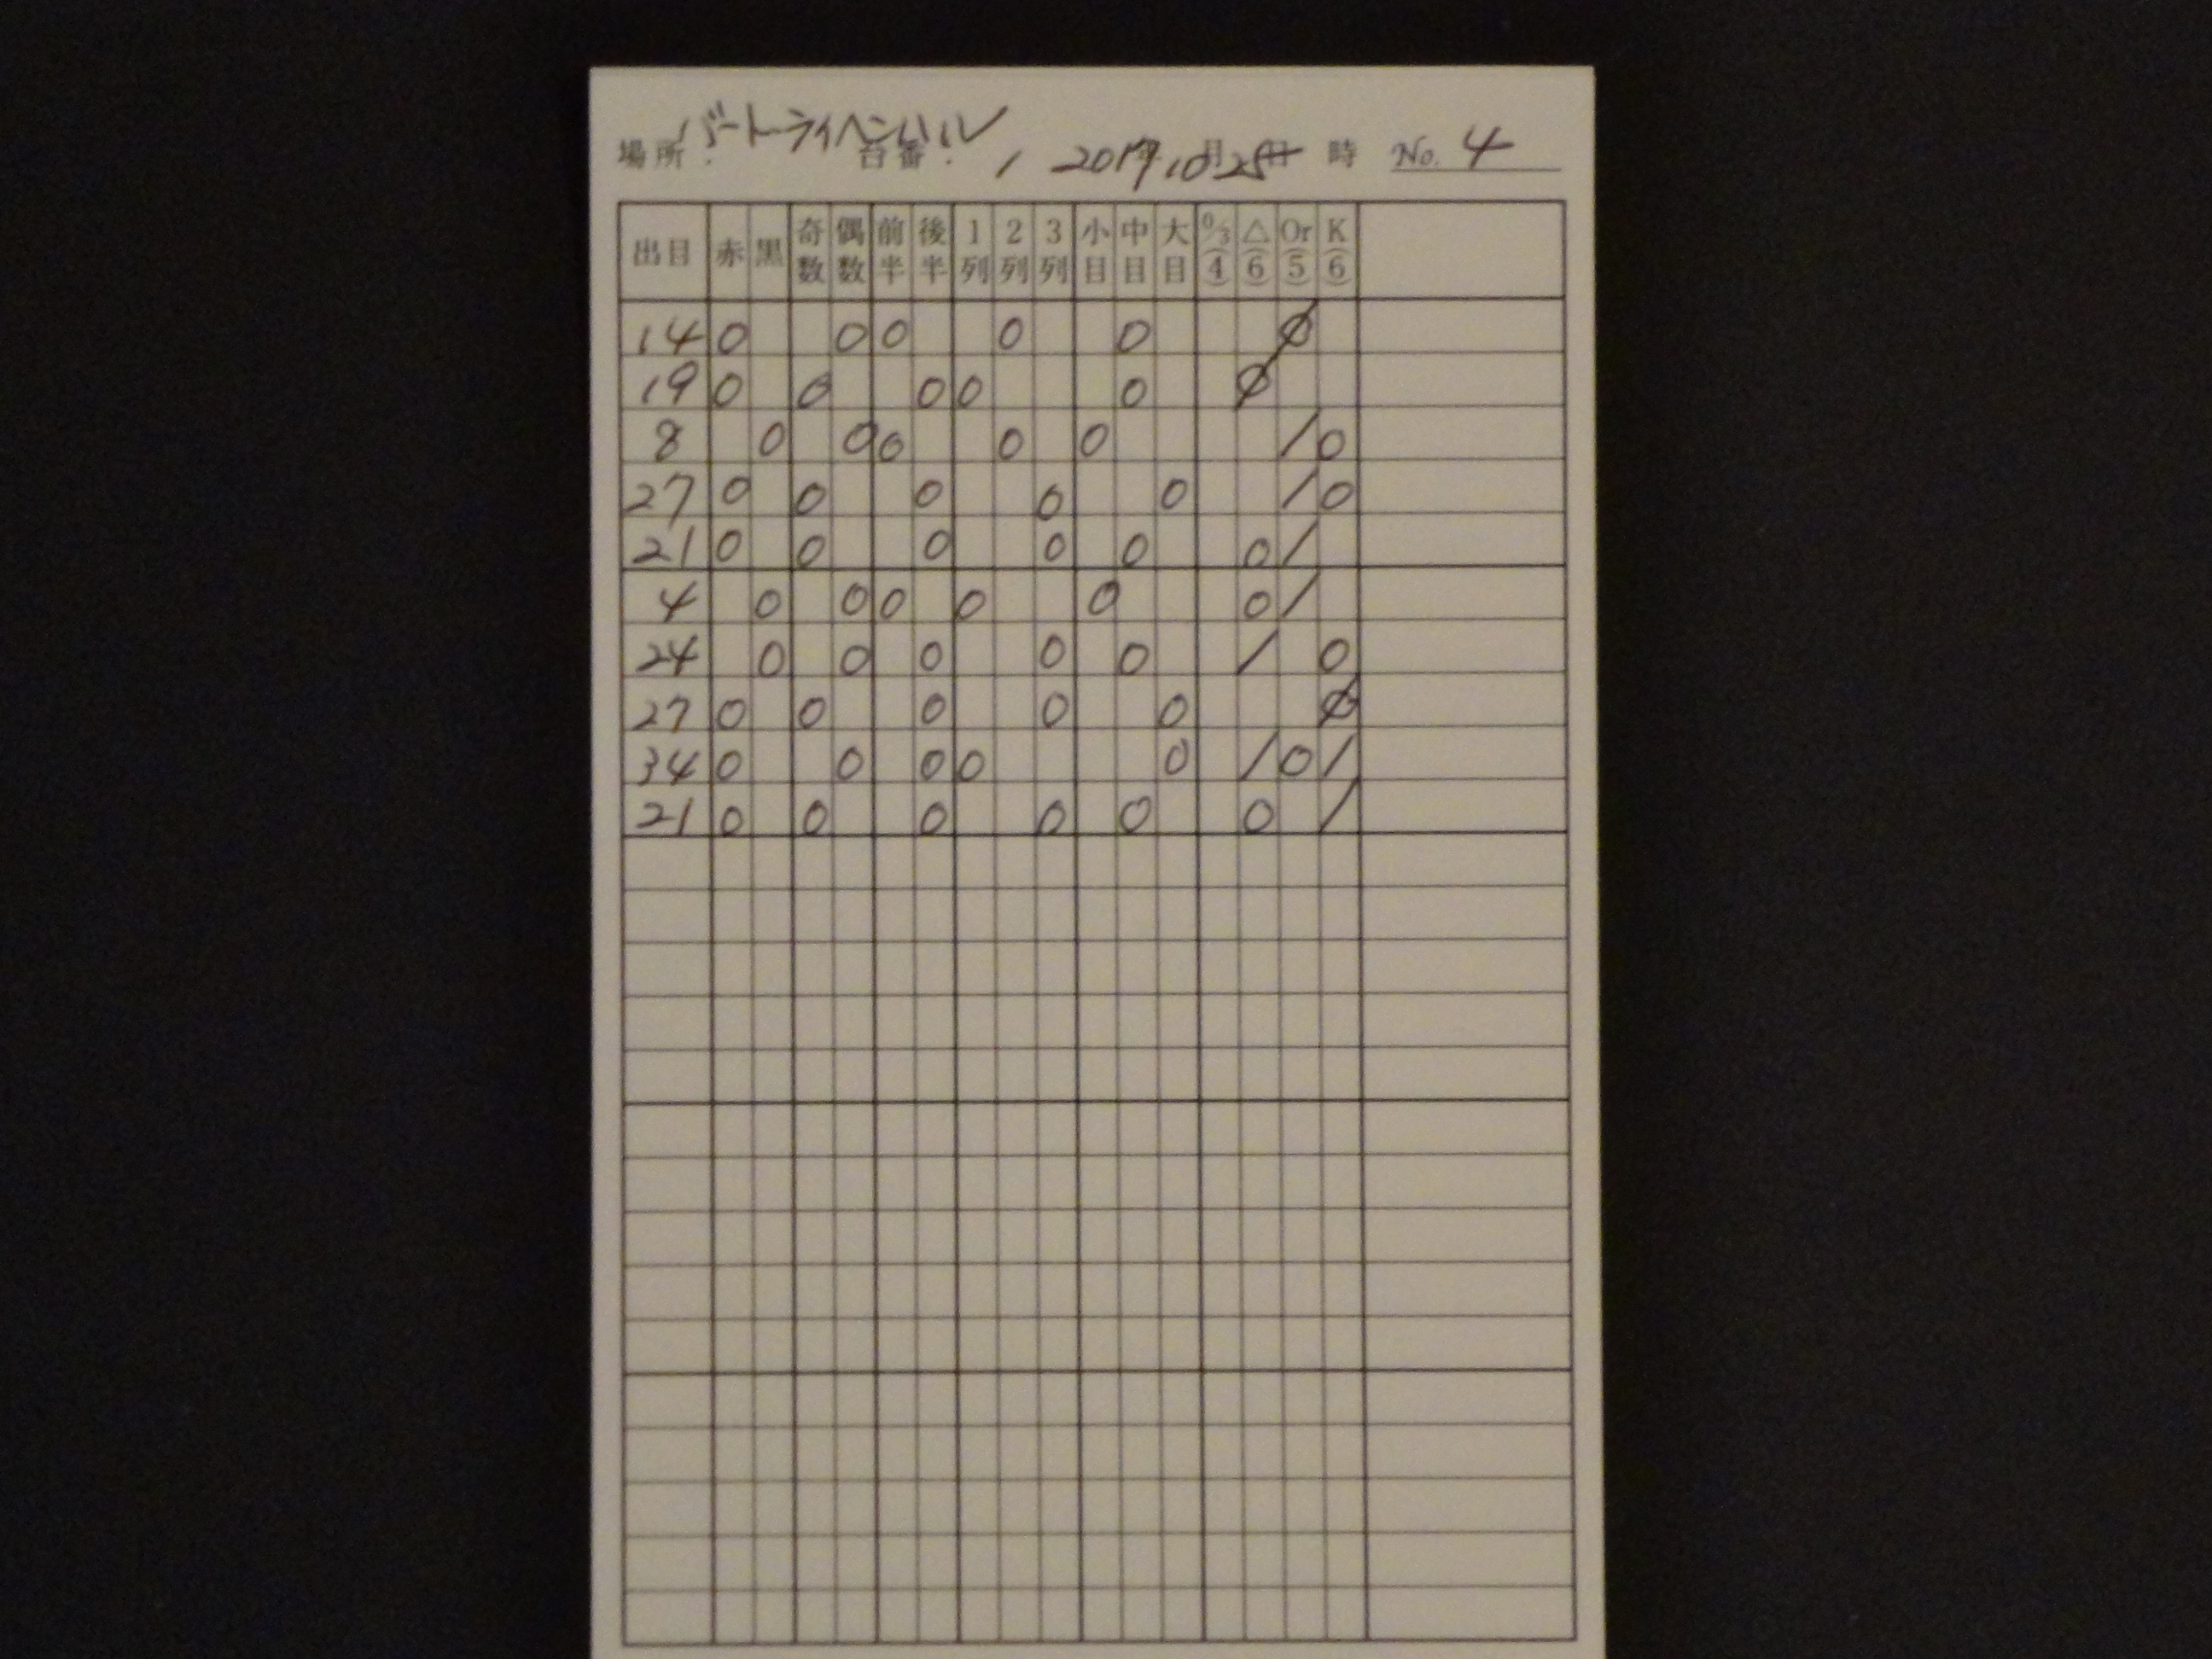 バートライヘンハル
場所. 台番. 1 2017年10月25日 時 No. 4
出目 赤 黒 奇数 偶数 前半 後半 1列 2列 3列 小目 中目 大目 0/3(4) △(6) Or(5) K(6)
14 0 0 0 0 0 Ø
19 0 0 0 0 0 Ø
8 0 0 0 0 0 / 0
27 0 0 0 0 0 / 0
21 0 0 0 0 0 0 /
4 0 0 0 0 0 0 /
24 0 0 0 0 0 / 0
27 0 0 0 0 0 Ø
34 0 0 0 0 0 / 0 /
21 0 0 0 0 0 0 /